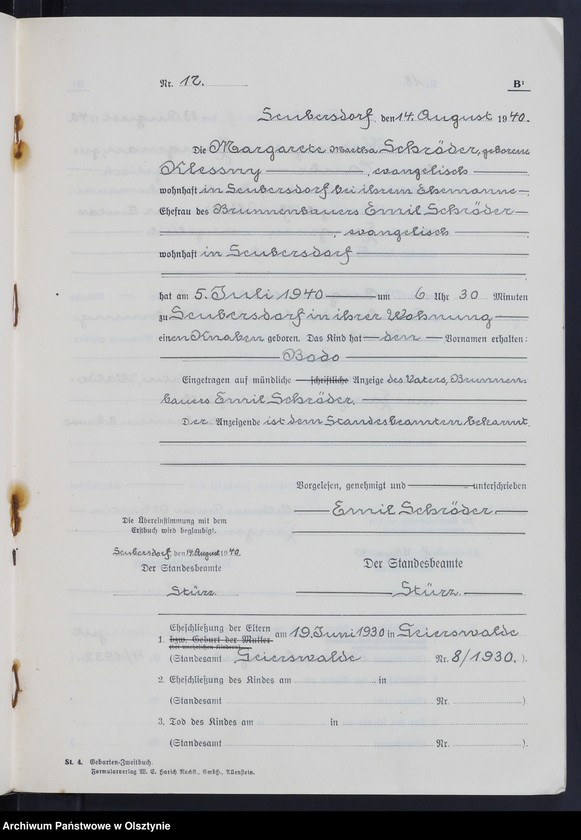 Nr. 12.
B¹
Seubersdorf, den 14. August 1940.
Die Margarete Martha Schröder, geborene
Klessny, evangelisch
wohnhaft in Seubersdorf bei ihrem Ehemanne,
Ehefrau des Brunnenbauers Emil Schröder
, evangelisch
wohnhaft in Seubersdorf
hat am 5. Juli 1940 um 6 Uhr 30 Minuten
zu Seubersdorf in ihrer Wohnung
einen Knaben geboren. Das Kind hat den Vornamen erhalten:
Bodo
Eingetragen auf mündliche schriftliche Anzeige des Vaters, Brunnen
bauers Emil Schröder.
Der Anzeigende ist dem Standesbeamten bekannt.
Vorgelesen, genehmigt und unterschrieben
Emil Schröder
Die Übereinstimmung mit dem
Erstbuch wird beglaubigt.
Seubersdorf, den 14. August 1940.
Der Standesbeamte
Stürz.
Der Standesbeamte
Stürz.
1. Eheschließung der Eltern
bzw. Geburt der Mutter
(bei unehelichen Kindern)
am 19. Juni 1930 in Geierswalde
(Standesamt Geierswalde Nr. 8/1930.).
2. Eheschließung des Kindes am in
(Standesamt Nr. ).
3. Tod des Kindes am in
(Standesamt Nr. ).
St. 4. Geburten-Zweitbuch.
Formularverlag W. E. Harich Nachf., GmbH., Allenstein.
Archiwum Państwowe w Olsztynie